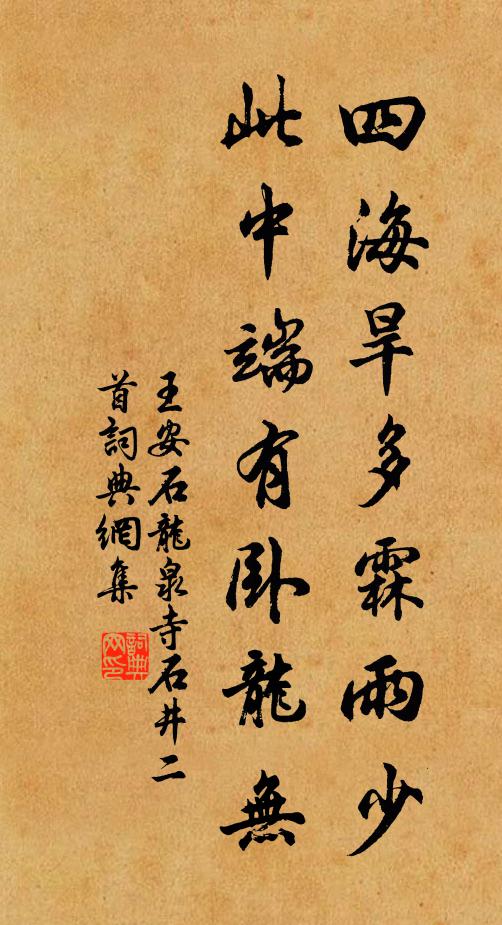 四海旱多霖雨少
此中端有卧龍無
王安石龍泉寺石井二
首詞典網集
詞典网印